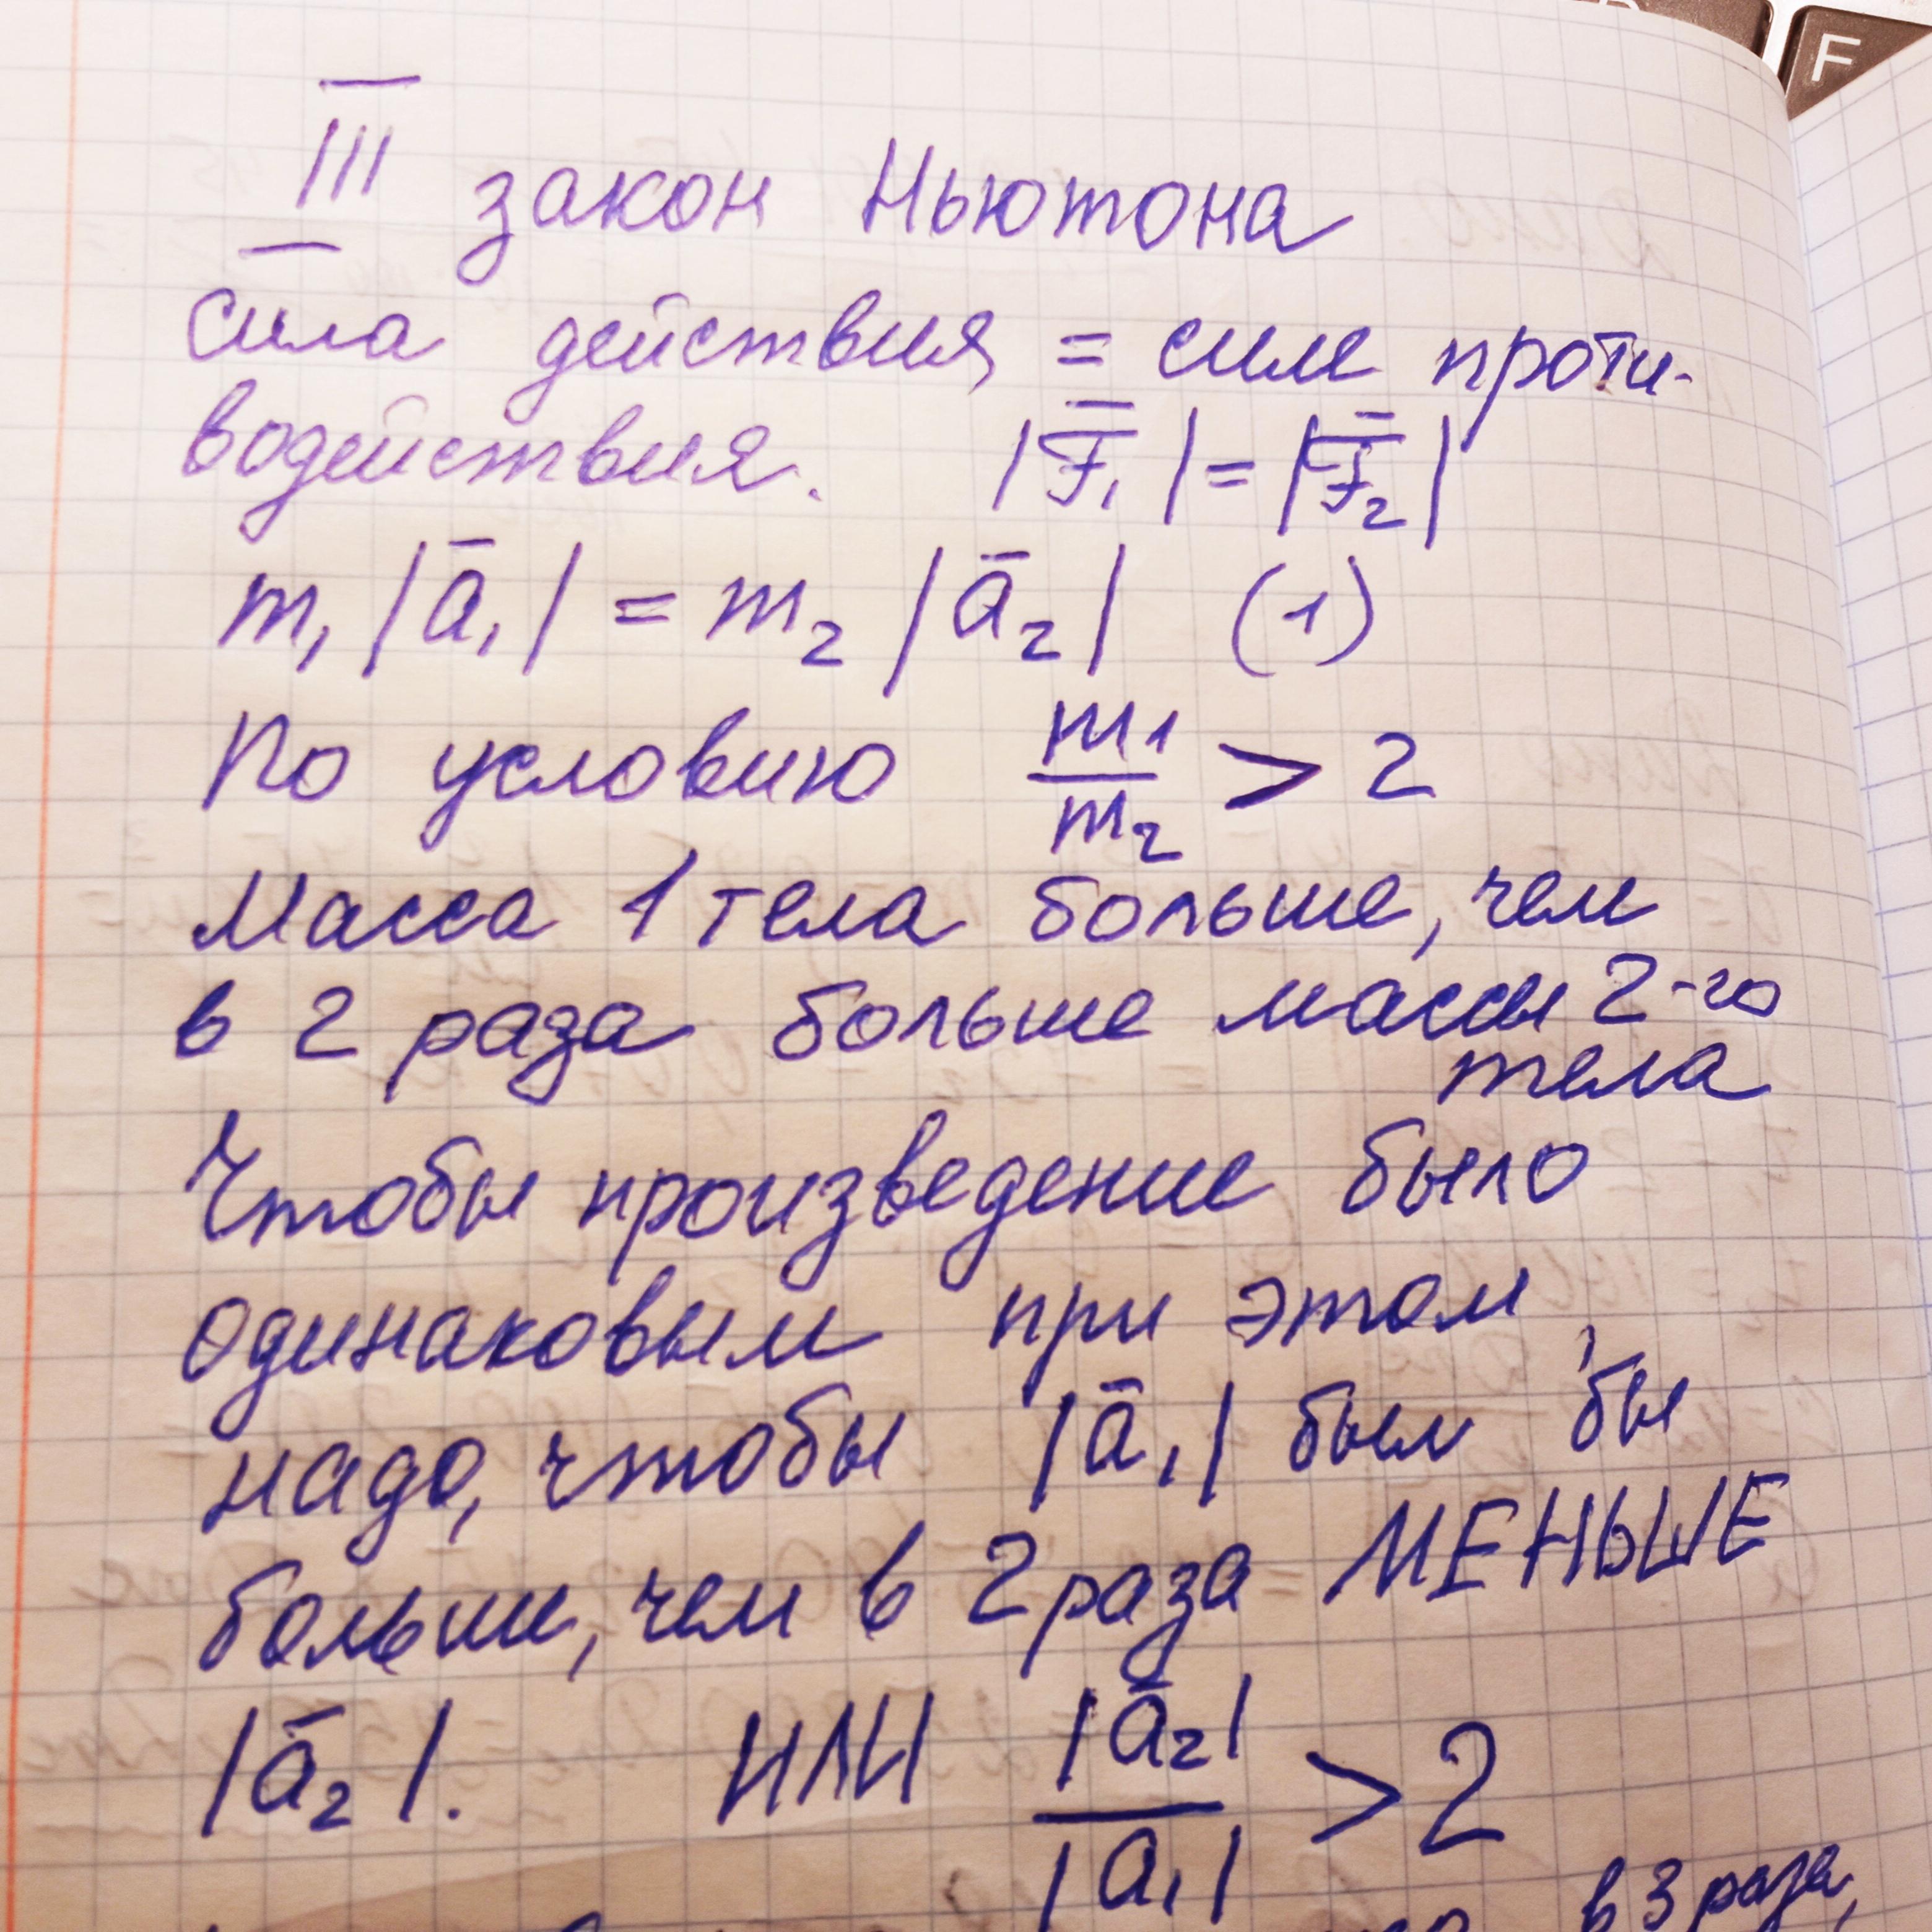 III закон Ньютона
Сила действия = силе проти-
водействия. |F̅₁| = |F̅₂|
m₁|a̅₁| = m₂|a̅₂| (1)
По условию m₁/m₂ > 2
Масса 1 тела больше, чем
в 2 раза больше массы 2-го
тела
Чтобы произведение было
одинаковым при этом,
надо, чтобы |a̅₁| был бы
больше, чем в 2 раза МЕНЬШЕ
|a̅₂|. ИЛИ |a̅₂|/|a̅₁| > 2
в 3 раза,
F